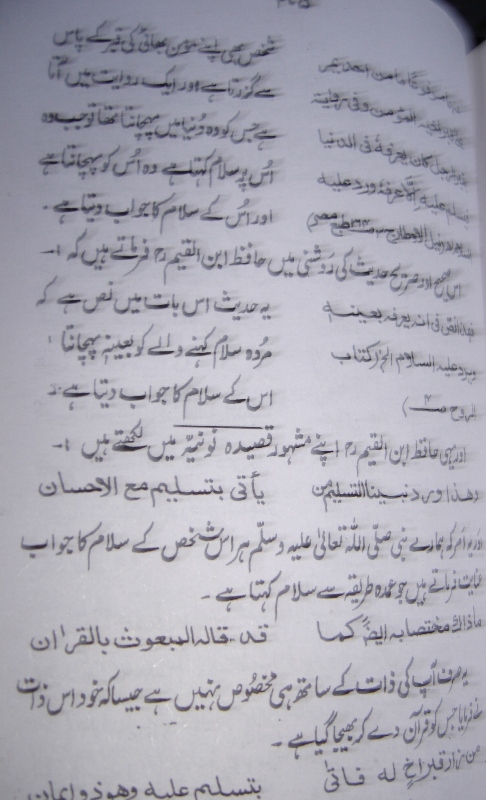 شخص بھی اپنے مومن بھائی کی قبر کے پاس
سے گزرتا ہے اور ایک روایت میں آتا
ہے جس کو وہ دنیا میں پہچانتا تھا تو جب وہ
اُس پر سلام کہتا ہے وہ اُس کو پہچانتا ہے
اور اُس کے سلام کا جواب دیتا ہے۔
المؤمن وفی روایة
کان یعرفہ فی الدنیا
فیسلم علیہ الا عرفہ ورد علیہ
اس صحیح اور صریح حدیث کی روشنی میں حافظ ابن القیم رح فرماتے ہیں کہ :۔
یہ حدیث اس بات میں نص ہے کہ
مردہ سلام کہنے والے کو بعینہٖ پہچانتا
اس کے سلام کا جواب دیتا ہے۔
فہذا نص فی انہ یعرفہ بعینہ
ویرد علیہ السلام الخ کتاب
الروح صـ)
اور یہی حافظ ابن القیم رح اپنے مشہور قصیدہ نونیہ میں لکھتے ہیں :۔
وھذا ورد نبینا التسلیم من یأتی بتسلیم مع الاحسان
اور یہ امر کہ ہمارے نبی صلی اللہ تعالیٰ علیہ وسلم ہر اس شخص کے سلام کا جواب
عنایت فرماتے ہیں جو عمدہ طریقہ سے سلام کہتا ہے۔
ماذاك مختصا به ایضاً کما قد قالہ المبعوث بالقراٰن
یہ صرف آپ کی ذات کے ساتھ ہی مخصوص نہیں ہے جیسا کہ خود اس ذات
نے فرمایا جس کو قرآن دے کر بھیجا گیا ہے۔
من زار قبر اخٍ له فاتیٰ بتسلیم علیہ وھو ذو ایمان